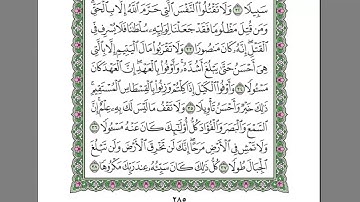 سَبِيلًا ۝٣٢ وَلَا تَقْتُلُوا۟ ٱلنَّفْسَ ٱلَّتِى حَرَّمَ ٱللَّهُ إِلَّا بِٱلْحَقِّ
وَمَن قُتِلَ مَظْلُومًا فَقَدْ جَعَلْنَا لِوَلِيِّهِۦ سُلْطَٰنًا فَلَا يُسْرِف فِّى
ٱلْقَتْلِ إِنَّهُۥ كَانَ مَنصُورًا ۝٣٣ وَلَا تَقْرَبُوا۟ مَالَ ٱلْيَتِيمِ إِلَّا بِٱلَّتِى
هِىَ أَحْسَنُ حَتَّىٰ يَبْلُغَ أَشُدَّهُۥ وَأَوْفُوا۟ بِٱلْعَهْدِ إِنَّ ٱلْعَهْدَ كَانَ
مَسْـُٔولًا ۝٣٤ وَأَوْفُوا۟ ٱلْكَيْلَ إِذَا كِلْتُمْ وَزِنُوا۟ بِٱلْقِسْطَاسِ ٱلْمُسْتَقِيمِ
ذَٰلِكَ خَيْرٌ وَأَحْسَنُ تَأْوِيلًا ۝٣٥ وَلَا تَقْفُ مَا لَيْسَ لَكَ بِهِۦ عِلْمٌ إِنَّ
ٱلسَّمْعَ وَٱلْبَصَرَ وَٱلْفُؤَادَ كُلُّ أُو۟لَٰٓئِكَ كَانَ عَنْهُ مَسْـُٔولًا ۝٣٦
وَلَا تَمْشِ فِى ٱلْأَرْضِ مَرَحًا إِنَّكَ لَن تَخْرِقَ ٱلْأَرْضَ وَلَن تَبْلُغَ
ٱلْجِبَالَ طُولًا ۝٣٧ كُلُّ ذَٰلِكَ كَانَ سَيِّئُهُۥ عِندَ رَبِّكَ مَكْرُوهًا ۝٣٨
٢٨٥